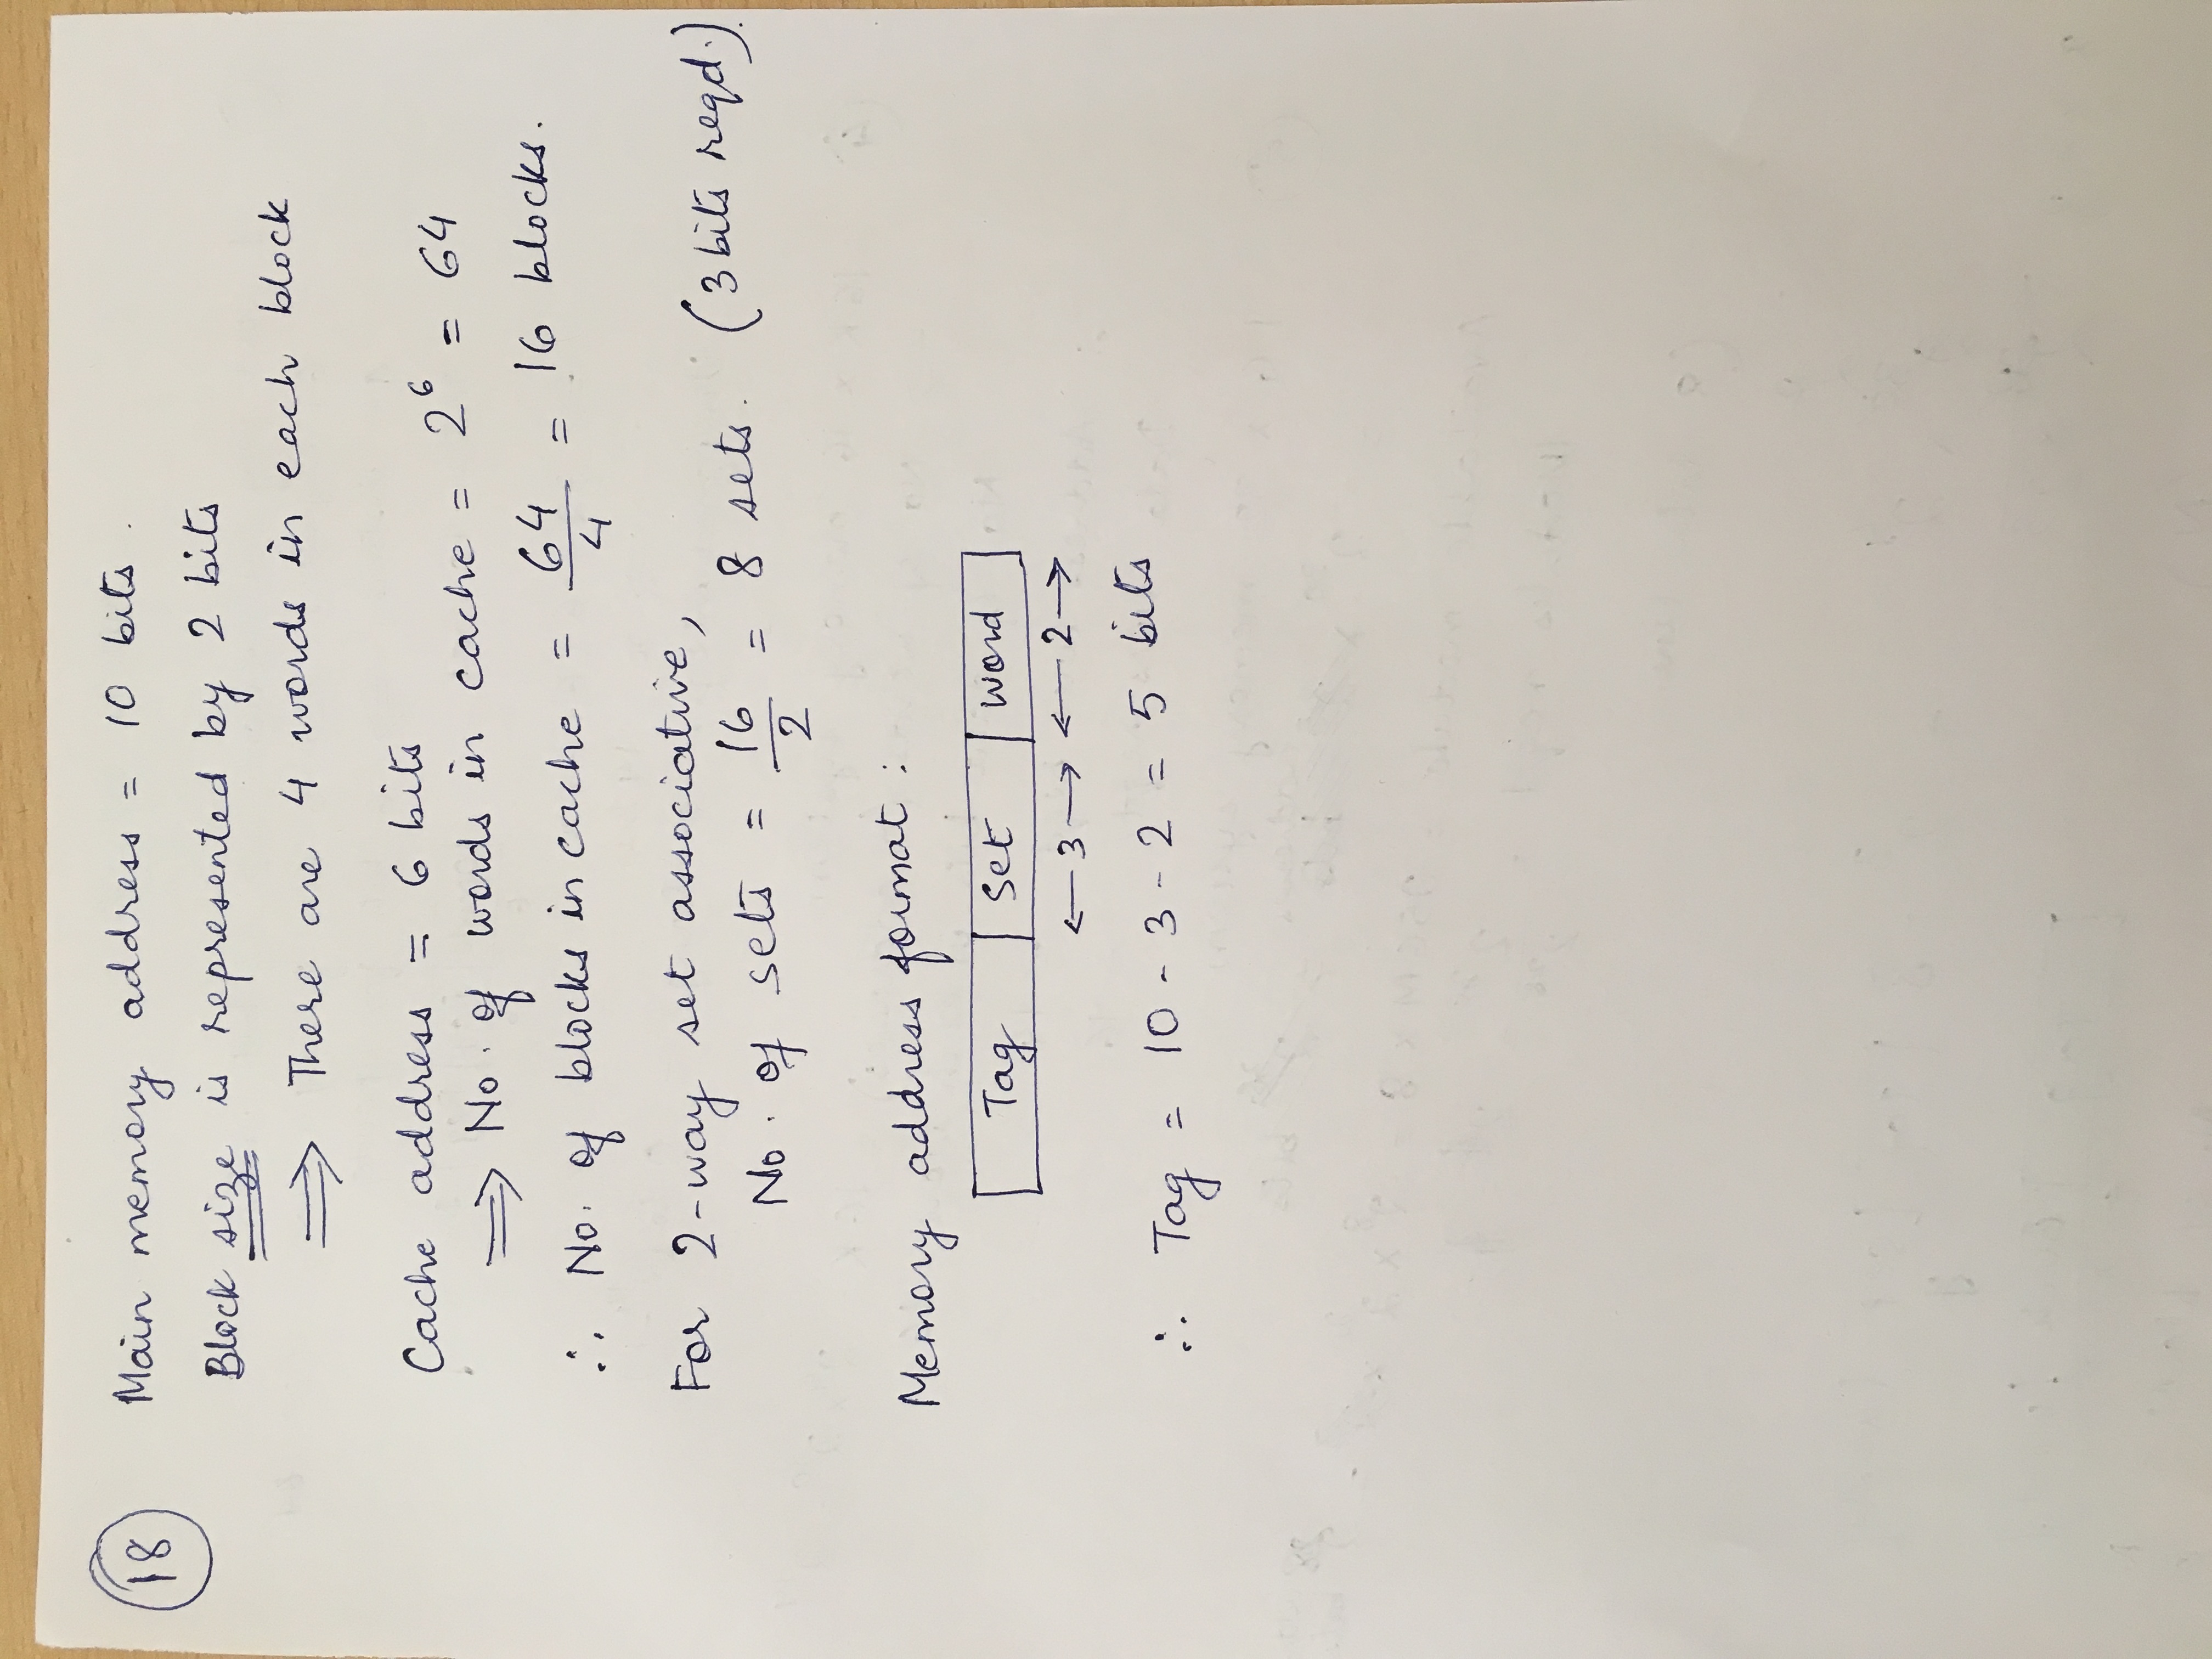 18
Main memory address = 10 bits.
Block size is represented by 2 bits
⟹ There are 4 words in each block
Cache address = 6 bits
⟹ No. of words in cache = 2⁶ = 64
∴ No. of blocks in cache = 64/4 = 16 blocks.
For 2-way set associative,
No. of sets = 16/2 = 8 sets. (3 bits reqd.).
Memory address format :
Tag | Set | Word
←3→ ←2→
∴ Tag = 10 - 3 - 2 = 5 bits